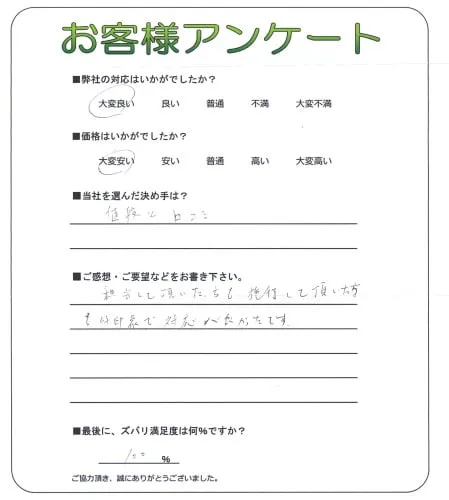 お客様アンケート
■弊社の対応はいかがでしたか?
大変良い 良い 普通 不満 大変不満
■価格はいかがでしたか?
大変安い 安い 普通 高い 大変高い
■当社を選んだ決め手は?
価格と口コミ
■ご感想・ご要望などをお書き下さい。
担当して頂いた して頂いた方
も 印象で対応が良かったです。
■最後に、ズバリ満足度は何%ですか?
100 %
ご協力頂き、誠にありがとうございました。